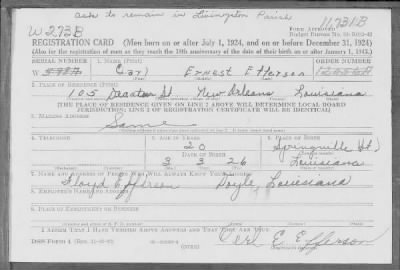 ask to remain in Livingston Parish
W 273 B
11,731 B
Form Approved
Budget Bureau No.
REGISTRATION CARD (Men born on or after July 1, 1924, and on or before December 31, 1924)
(Also for the registration of men as they reach the 18th anniversary of the date of their birth on or after January 1, 1943.)
SERIAL NUMBER
1. NAME (Print)
ORDER NUMBER
W
Carl Ernest Efferson
(First) (Middle) (Last)
2. PLACE OF RESIDENCE (Print)
105 St New Orleans Louisiana
[THE PLACE OF RESIDENCE GIVEN ON LINE 2 ABOVE WILL DETERMINE LOCAL BOARD
JURISDICTION; LINE 2 OF REGISTRATION CERTIFICATE WILL BE IDENTICAL]
3. MAILING ADDRESS
Same
4. TELEPHONE
5. AGE IN YEARS
6. PLACE OF BIRTH
20
Springville
DATE OF BIRTH
3 3 26
Louisiana
7. NAME AND ADDRESS OF PERSON WHO WILL ALWAYS KNOW YOUR ADDRESS
Floyd Efferson Doyle, Louisiana
8. EMPLOYER'S NAME AND ADDRESS
9. PLACE OF EMPLOYMENT OR BUSINESS
I AFFIRM THAT I HAVE VERIFIED ABOVE ANSWERS AND THAT THEY ARE TRUE.
DSS Form 1
(OVER)
Carl E. Efferson